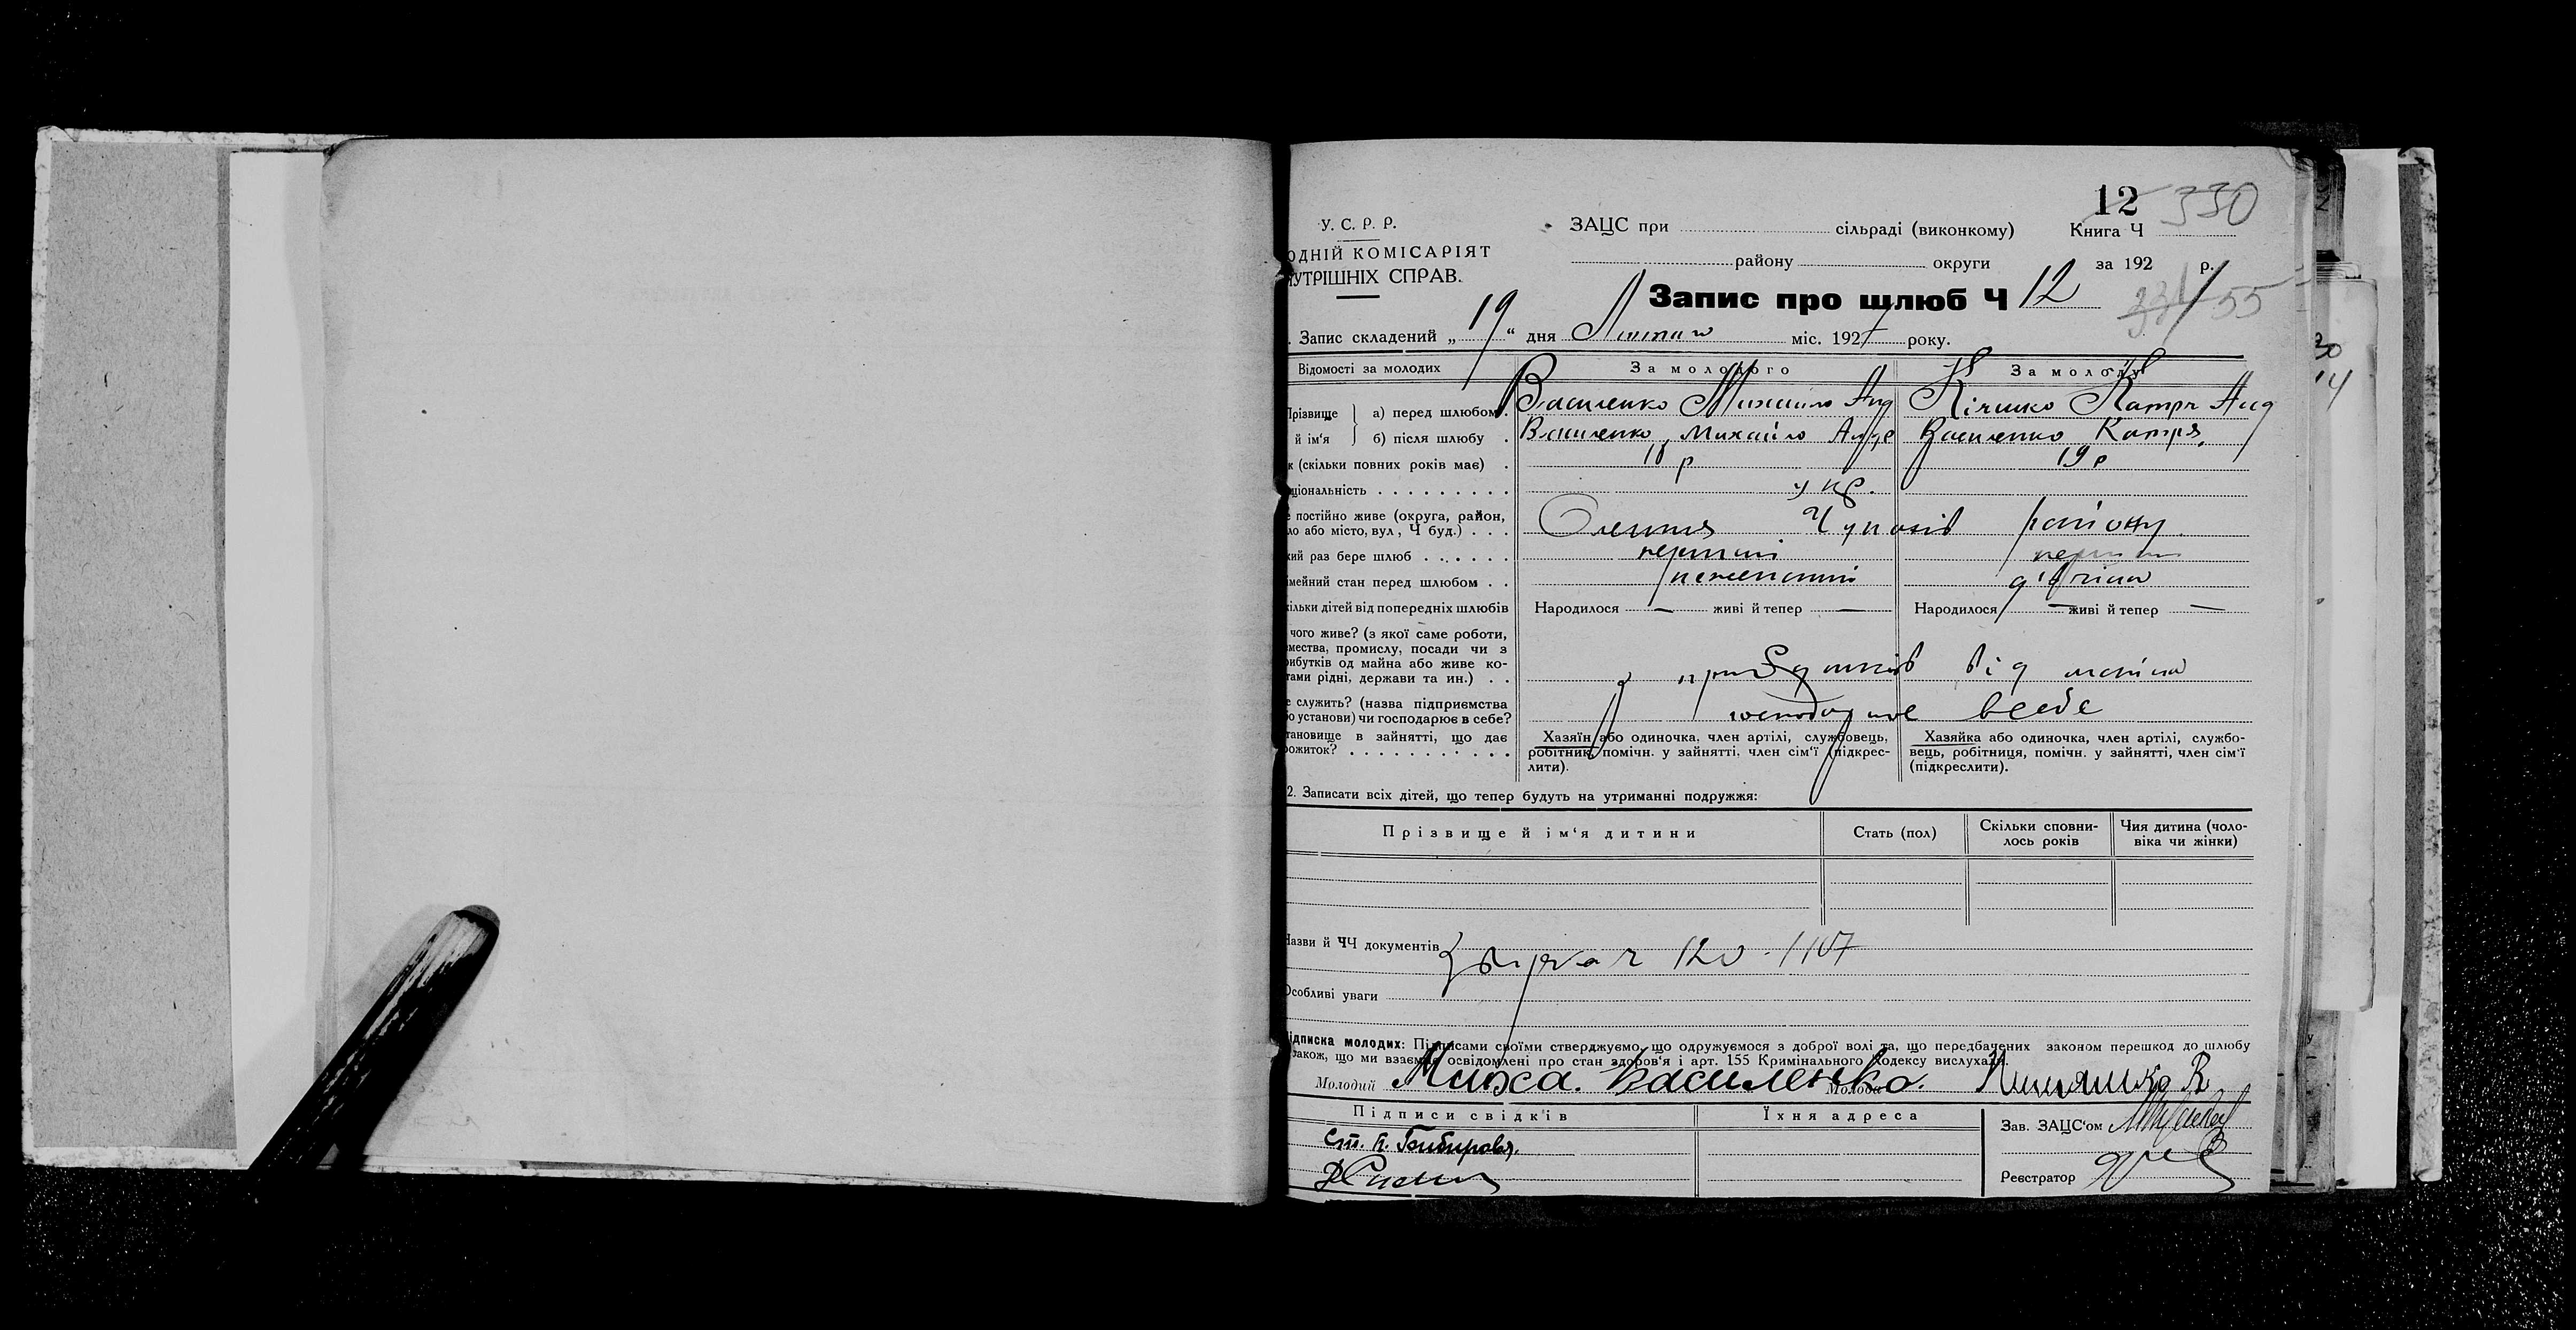 12 330
У. С. Р. Р.
ОДНІЙ КОМІСАРІЯТ
УТРІШНІХ СПРАВ.
ЗАЦС при сільраді (виконкому) Книга Ч
району округи за 192 р.
Запис про шлюб Ч 12
55
Запис складений „19“ дня міс. 1927 року.
Відомості за молодих За молодого За молоду
Прізвище й ім'я
а) перед шлюбом. Василенко Михайло Анд Катря Анд
б) після шлюбу . Василенко Михайло Андр Василенко Катря
к (скільки повних років має) . 18 р 19 р
ціональність . . . . . . . . . укр.
постійно живе (округа, район,
ло або місто, вул, Ч буд.) . . . району
кий раз бере шлюб . . . . . . перший перший
імейний стан перед шлюбом . . нежонатий дівчина
кільки дітей від попередніх шлюбів Народилося — живі й тепер — Народилося — живі й тепер —
чого живе? (з якої саме роботи,
мества, промислу, посади чи з
рибутків од майна або живе ко-
тами рідні, держави та ин.) . . з прибутків від майна
е служить? (назва підприємства
бо установи) чи господарює в себе? господарює в себе
тановище в зайнятті, що дає
рожиток? . . . . . . . . . . . .
Хазяїн або одиночка, член артілі, службовець,
робітник, помічн. у зайнятті, член сім'ї (підкрес-
лити).
Хазяйка або одиночка, член артілі, службо-
вець, робітниця, помічн. у зайнятті, член сім'ї
(підкреслити).
2. Записати всіх дітей, що тепер будуть на утриманні подружжя:
Прізвище й ім'я дитини Стать (пол) Скільки сповни-
лось років Чия дитина (чоло-
віка чи жінки)
Назви й ЧЧ документів 120
Особливі уваги
ідписка молодих: Підписами своїми стверджуємо, що одружуємося з доброї волі та, що передбачених законом перешкод до шлюбу
також, що ми взаємно освідомлені про стан здоров'я і арт. 155 Кримінального Кодексу вислухали.
Молодий Миха. Василенко. Молода
Підписи свідків Їхня адреса Зав. ЗАЦС'ом
Реєстратор